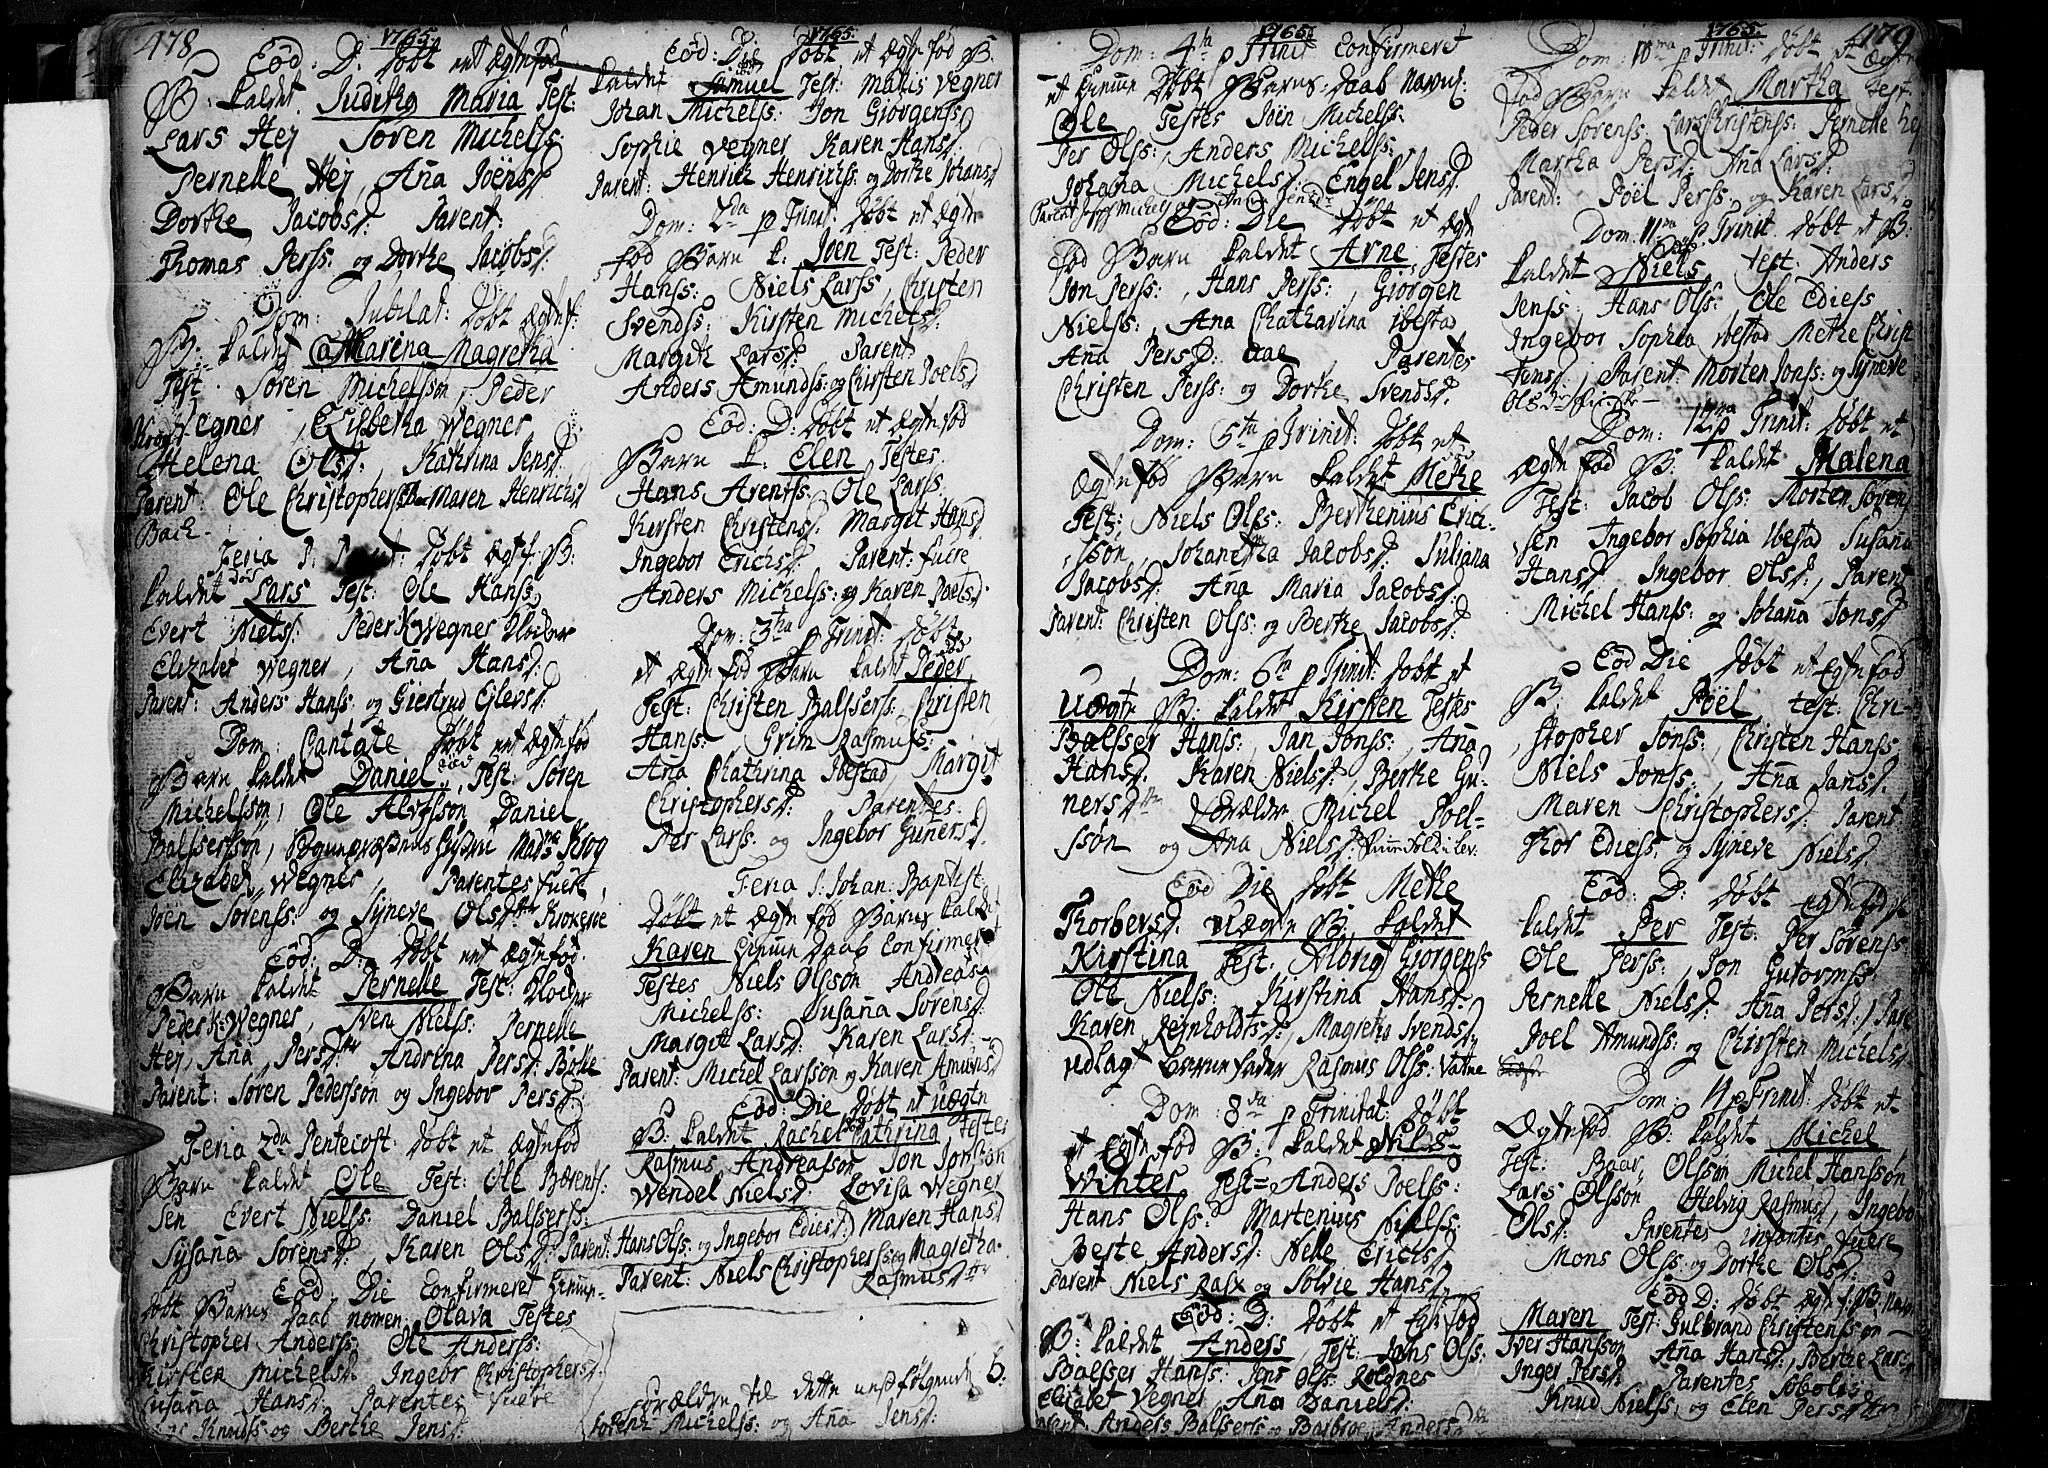 478
1765
Eod: D: døbt et Ægtefød
B: kaldet Juditha Maria Test:
Lars Hej Søren Michelss:
Pernelle Hej, Aña Jöensd.
Dorthe Jacobsd: Parent:
Thomas Perss: og Dorthe Jacobsd:
Dom: Jubilat: døbt ægtef:
B: kaldet Catharina Magretha
Test: Søren Michelssøn, Peder
Krog Wegner, Elisbetha Wegner
Helena Olsd:, Kathrina Jensd:
Parent: Ole Christopherss: Maren Henrichsd
Bach
Feria døbt ægtf: B:
kaldet Lars Test: Ole Hanss,
død
Evert Nielss: Peder K Wegner Klocker
Elizabet Wegner, Aña Hansd:
Parent: Anders Hanss: og Giertrud Ejlersd:
Dom: Cantate døbt et ægtefød
Barn kaldet Daniel, Test: Søren
død
Michelssøn, Ole Alvfssøn, Daniel
Balssersøn, Madme Krog
Elizabet Wegner, Parentes fuere,
Joen Sørenss: og Syneve Olsdtr
Eod: D: døbt et ægtefød
Barn kaldet Pernelle Test: Klocker
Peder K: Wegner, Sven Nielss: Pernelle
Hej, Aña Persdtr Andrina Persd:
Parent: Søren Pederssøn og Ingebor Persd:
Feria 2da Pentecost: døbt et ægtefød
Barn kaldet Ole Test: Ole Bærents-
sen Evert Nielss: Daniel Balsserss:
Sysaña Sørensd:, Karen Olsd: Parent: Hans Olss: og Ingebor Ediesd:
Eod: Die Confirmeret hiemme
døbt Barns Daab nomen Olava Testes
Christopher Anderss: Ole Anderss:
Kirsten Michelsd: Ingebor Christophersd:
Susaña Hansd: Parentes fuere
Knudss: og Berthe Jensd:
1765
Eod: D: døbt et ægtefød B:
kaldet Samuel Test: Matis Vegner
død
Johan Michelss: Jon Giörgenss,
Sophie Vegner Karen Hansd:
Parent: Henrich Henrichss: og Dorthe Johansd
Dom: 2da p Trinit: døbt et ægte
fød Barn k: Joen Test: Peder
Hanss: Niels Larss, Christen
Svendss: Kirsten Michelsd:
Margith Larsd: Parent:
Anders Amundss: og Chirsten Poelsd
Eod: D: døbt et ægtefød
Barn k: Elen Testes
Hans Arentss: Ole Larss
Kirsten Christensd: Margit Hansd
Ingebor Erichsd: Parent: fuere
Anders Michelss: og Karen Poelsd:
Dom: 3tia p Trinit: døbt
et ægtefød Barn kaldet Peder
død
Test: Christen Balsserss: Christen
Hanss: Grim Rasmuss:
Ana Chathrina Ibestad, Margit
Christophersd: Parentes:
Per Larss: og Ingebor Gunersd:
Feria S: Johan: Baptist:
døbt et ægtefød Barns kaldet
Karen hiemme daab Confirmeret
Testes Niels Olssøn Andreas
Michelss: Susaña Sørensd:
Margit Larsd: Karen Larsd:
Parent: Michel Larssøn og Karen Amundsd
Eod: Die døbt et uægte
B: kaldet Rachel Cathrina Testes
død
Rasmus Andreassøn Jon Jonssøn
Wendel Nielsd: Lovisa Wegner
Maren Hansd
Parent: Niels Christopherss: og Magretha
Rasmusdtr
Forældre til dette næst følgende B:
Michelss: og Aña Jensd:
1765
Dom: 4ta p Trinit: Confirmeret
et hiemme døbt Barns daab navnl:
Ole Testes Jöen Michelss:
Per Olss:, Anders Michelss:
Johaña Michelsd:, Engel Jensd.
Eod: Die døbt et ægte
fød Barn kaldet Arne, Testes
Jon Perss:, Hans Perss:, Giörgen
Nielss:, Ana Chatharina Ibestad
Aña Persd: Aae, Parentes
Christen Perss: og Dorthe Svendsd.
Dom: 5ta p Trinit: døbt et
ægtefød Barn kaldet Methe
død
Test: Niels Olss: Berthenius Erich-
ssøn, Johanetha Jacobsd: Juliana
Jacobsd: Ana Maria Jacobsd:
Parent: Christen Olss: og Berthe Jacobsd:
Dom: 6ta p Trinit: døbt et
Uægte B: kaldet Kirsten Testes
Balsser Hanss:, Jan Jonss:, Ana
Hansd. Karen Nielsd:, Berthe Gu-
nersdtr Forældre Michel Poel-
ssøn og Ana Nielsd:
Eod Die døbt Methe
Thorbersd: uægte B: kaldet
Kirstina Test: Albrigt Giörgenss
Ole Nielss: Kirstina Hansd:
Karen Reinholdtsd: Magretha Svendsd.
udlagt Barnefader Rasmus Olss: Vatne
Dom: 8da p Trinitat: døbt
et ægtefød B: kaldet Niels
Winter Test= Anders Poelss:
Hans Olss: Martenius Nielss:
Berte Andersd: Nelle Erichsd:
Parent Niels Rasm og Solvie Hansd
Eod: D: døbt et ægtefød
B: kaldet Anders, Test: Jens Olss:
Balsser Hanss: Jens Olss: Roldnes
Elizabet Vegner Aña Danielsd:
Parent. Anders Balsserss og Barbroe Andersdtr
1765
479
Dom: 10ma p Trinit: døbt et Ægte
fød Barn kaldet Martha Test
Peder Sørenss: Lars Christenss: Pernelle Hej
Martha Persd: Aña Larsd:
Parent: Pöel Perss: og Karen Larsd.
Dom: 11ma p Trinit døbt et B:
kaldet Niels, Test: Anders
død
Jenss:, Hans Olss: Ole Ediess
Ingebor Sophia Ibestad Methe Christ
Jensd:, Parent: Morten Jonss: og Syneve
Olsdtr
Dom: 12ma p Trinit: døbt et
Ægtefød B: kaldet Malena
Test: Jacob Olss: Morten Søren
ssen Ingebor Sophia Ibestad Susaña
Hansd, Ingebor Olsd:, Parent
Michel Hanss: og Johaña Jonsd:
Eod Die døbt et ægtefød
B: kaldet Pöel Test: Chri-
stopher Jonss:, Christen Hanss.
Niels Jonss:, Aña Jansd.
Maren Christophersd: Parent:
Thor Ediess: og Syneve Nielsd:
Eod: D: døbt ægtefød B:
kaldet Per Test: Per Sørenss.
Ole Perss:, Jon Gutormss:
Pernelle Nielsd: Aña Persd:, Pare
Poel Amundss: og Chirsten Michelsd:
Dom: p Trinit: døbt et
Ægtefød B: kaldet Michel
Test: Baar Olssøn Michel Hanssøn
Lars Olssøn Helvig Rasmusd, Ingebor
Olsd: Parentes infantes fuere
Mons Olss: og Dorthe Olsd:
Eod D: døbt ægtef: B:
Maren Test: Gulbrand Christenssøn
Iver Hanssøn Ana Hansd:, Berthe Lars
Inger Persd: Parentes Sobolis
Knud Nielss, og Elen Persdtr